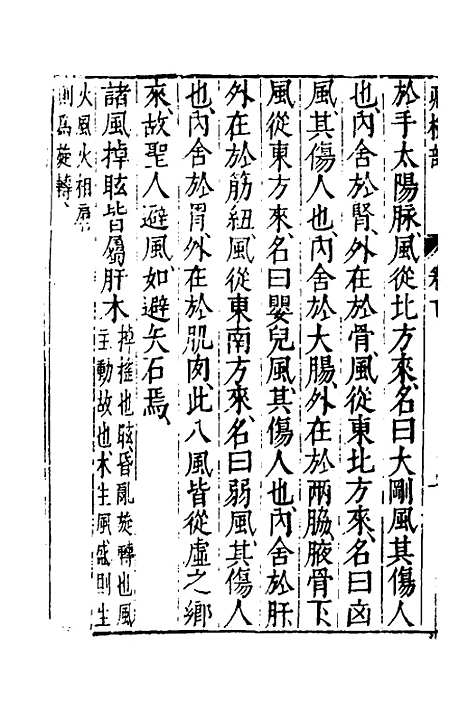 於手太陽脉、風從北方來、名曰大剛風、其傷人
也、內舍於腎、外在於骨、風從東北方來、名曰凶
風、其傷人也、內舍於大腸、外在於兩脇腋骨下
風從東方來、名曰嬰兒風、其傷人也、內舍於肝
外在於筋紐、風從東南方來、名曰弱風、其傷人
也、內舍於胃、外在於肌肉、此八風皆從虛之鄉
來、故聖人避風、如避矢石焉、
諸風掉眩皆屬肝木
掉搖也眩昏亂旋轉也風
主動故也、木生風盛則生
火風火相
則爲旋轉、